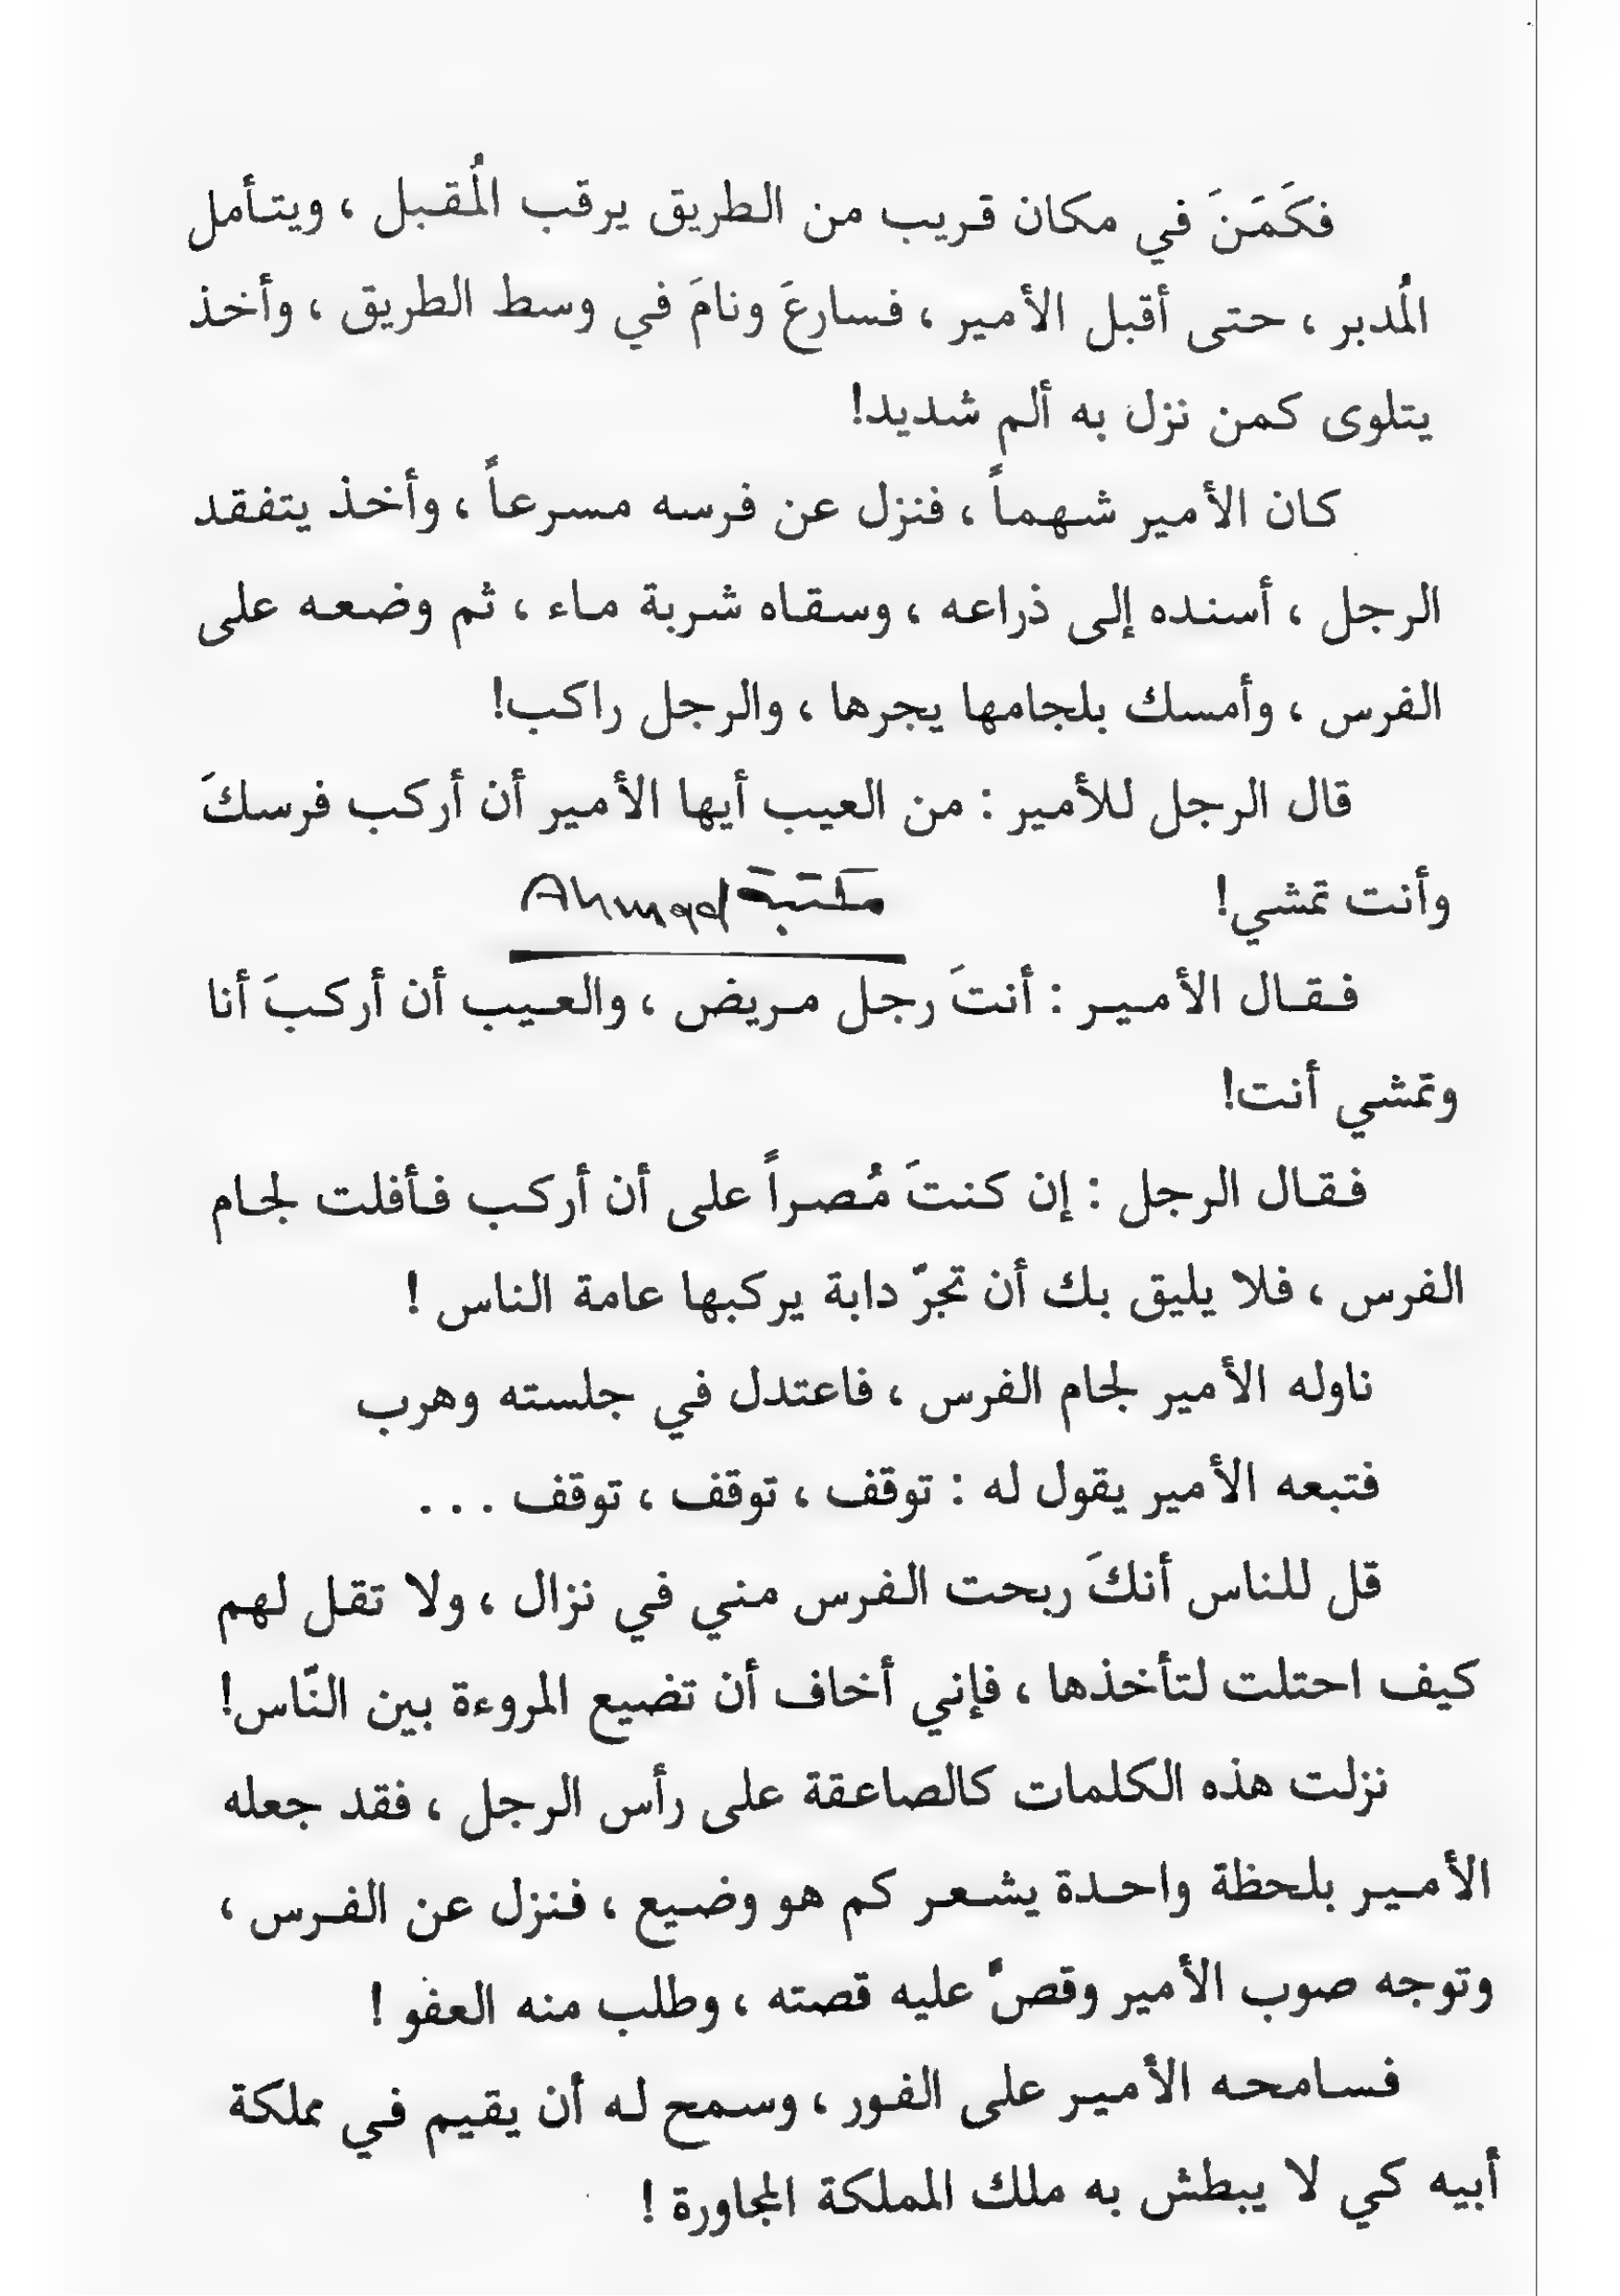 فكَمَنَ في مكان قريب من الطريق يرقب المُقبل ، ويتأمل
المُدبر ، حتى أقبل الأمير ، فسارعَ ونامَ في وسط الطريق ، وأخذ
يتلوى كمن نزل به ألم شديد!
كان الأمير شهماً ، فنزل عن فرسه مسرعاً ، وأخذ يتفقد
الرجل ، أسنده إلى ذراعه ، وسقاه شربة ماء ، ثم وضعه على
الفرس ، وأمسك بلجامها يجرها ، والرجل راكب!
قال الرجل للأمير : من العيب أيها الأمير أن أركب فرسكَ
وأنت تمشي!
مكتبة Ahmad
فقال الأمير : أنتَ رجل مريض ، والعيب أن أركبَ أنا
وتمشي أنت!
فقال الرجل : إن كنتَ مُصراً على أن أركب فأفلت لجام
الفرس ، فلا يليق بك أن تجرّ دابة يركبها عامة الناس !
ناوله الأمير لجام الفرس ، فاعتدل في جلسته وهرب
فتبعه الأمير يقول له : توقف ، توقف ، توقف . . .
قل للناس أنكَ ربحت الفرس مني في نزال ، ولا تقل لهم
كيف احتلت لتأخذها ، فإني أخاف أن تضيع المروءة بين النّاس!
نزلت هذه الكلمات كالصاعقة على رأس الرجل ، فقد جعله
الأمير بلحظة واحدة يشعر كم هو وضيع ، فنزل عن الفرس ،
وتوجه صوب الأمير وقصّ عليه قصته ، وطلب منه العفو !
فسامحه الأمير على الفور ، وسمح له أن يقيم في مملكة
أبيه كي لا يبطش به ملك المملكة المجاورة !